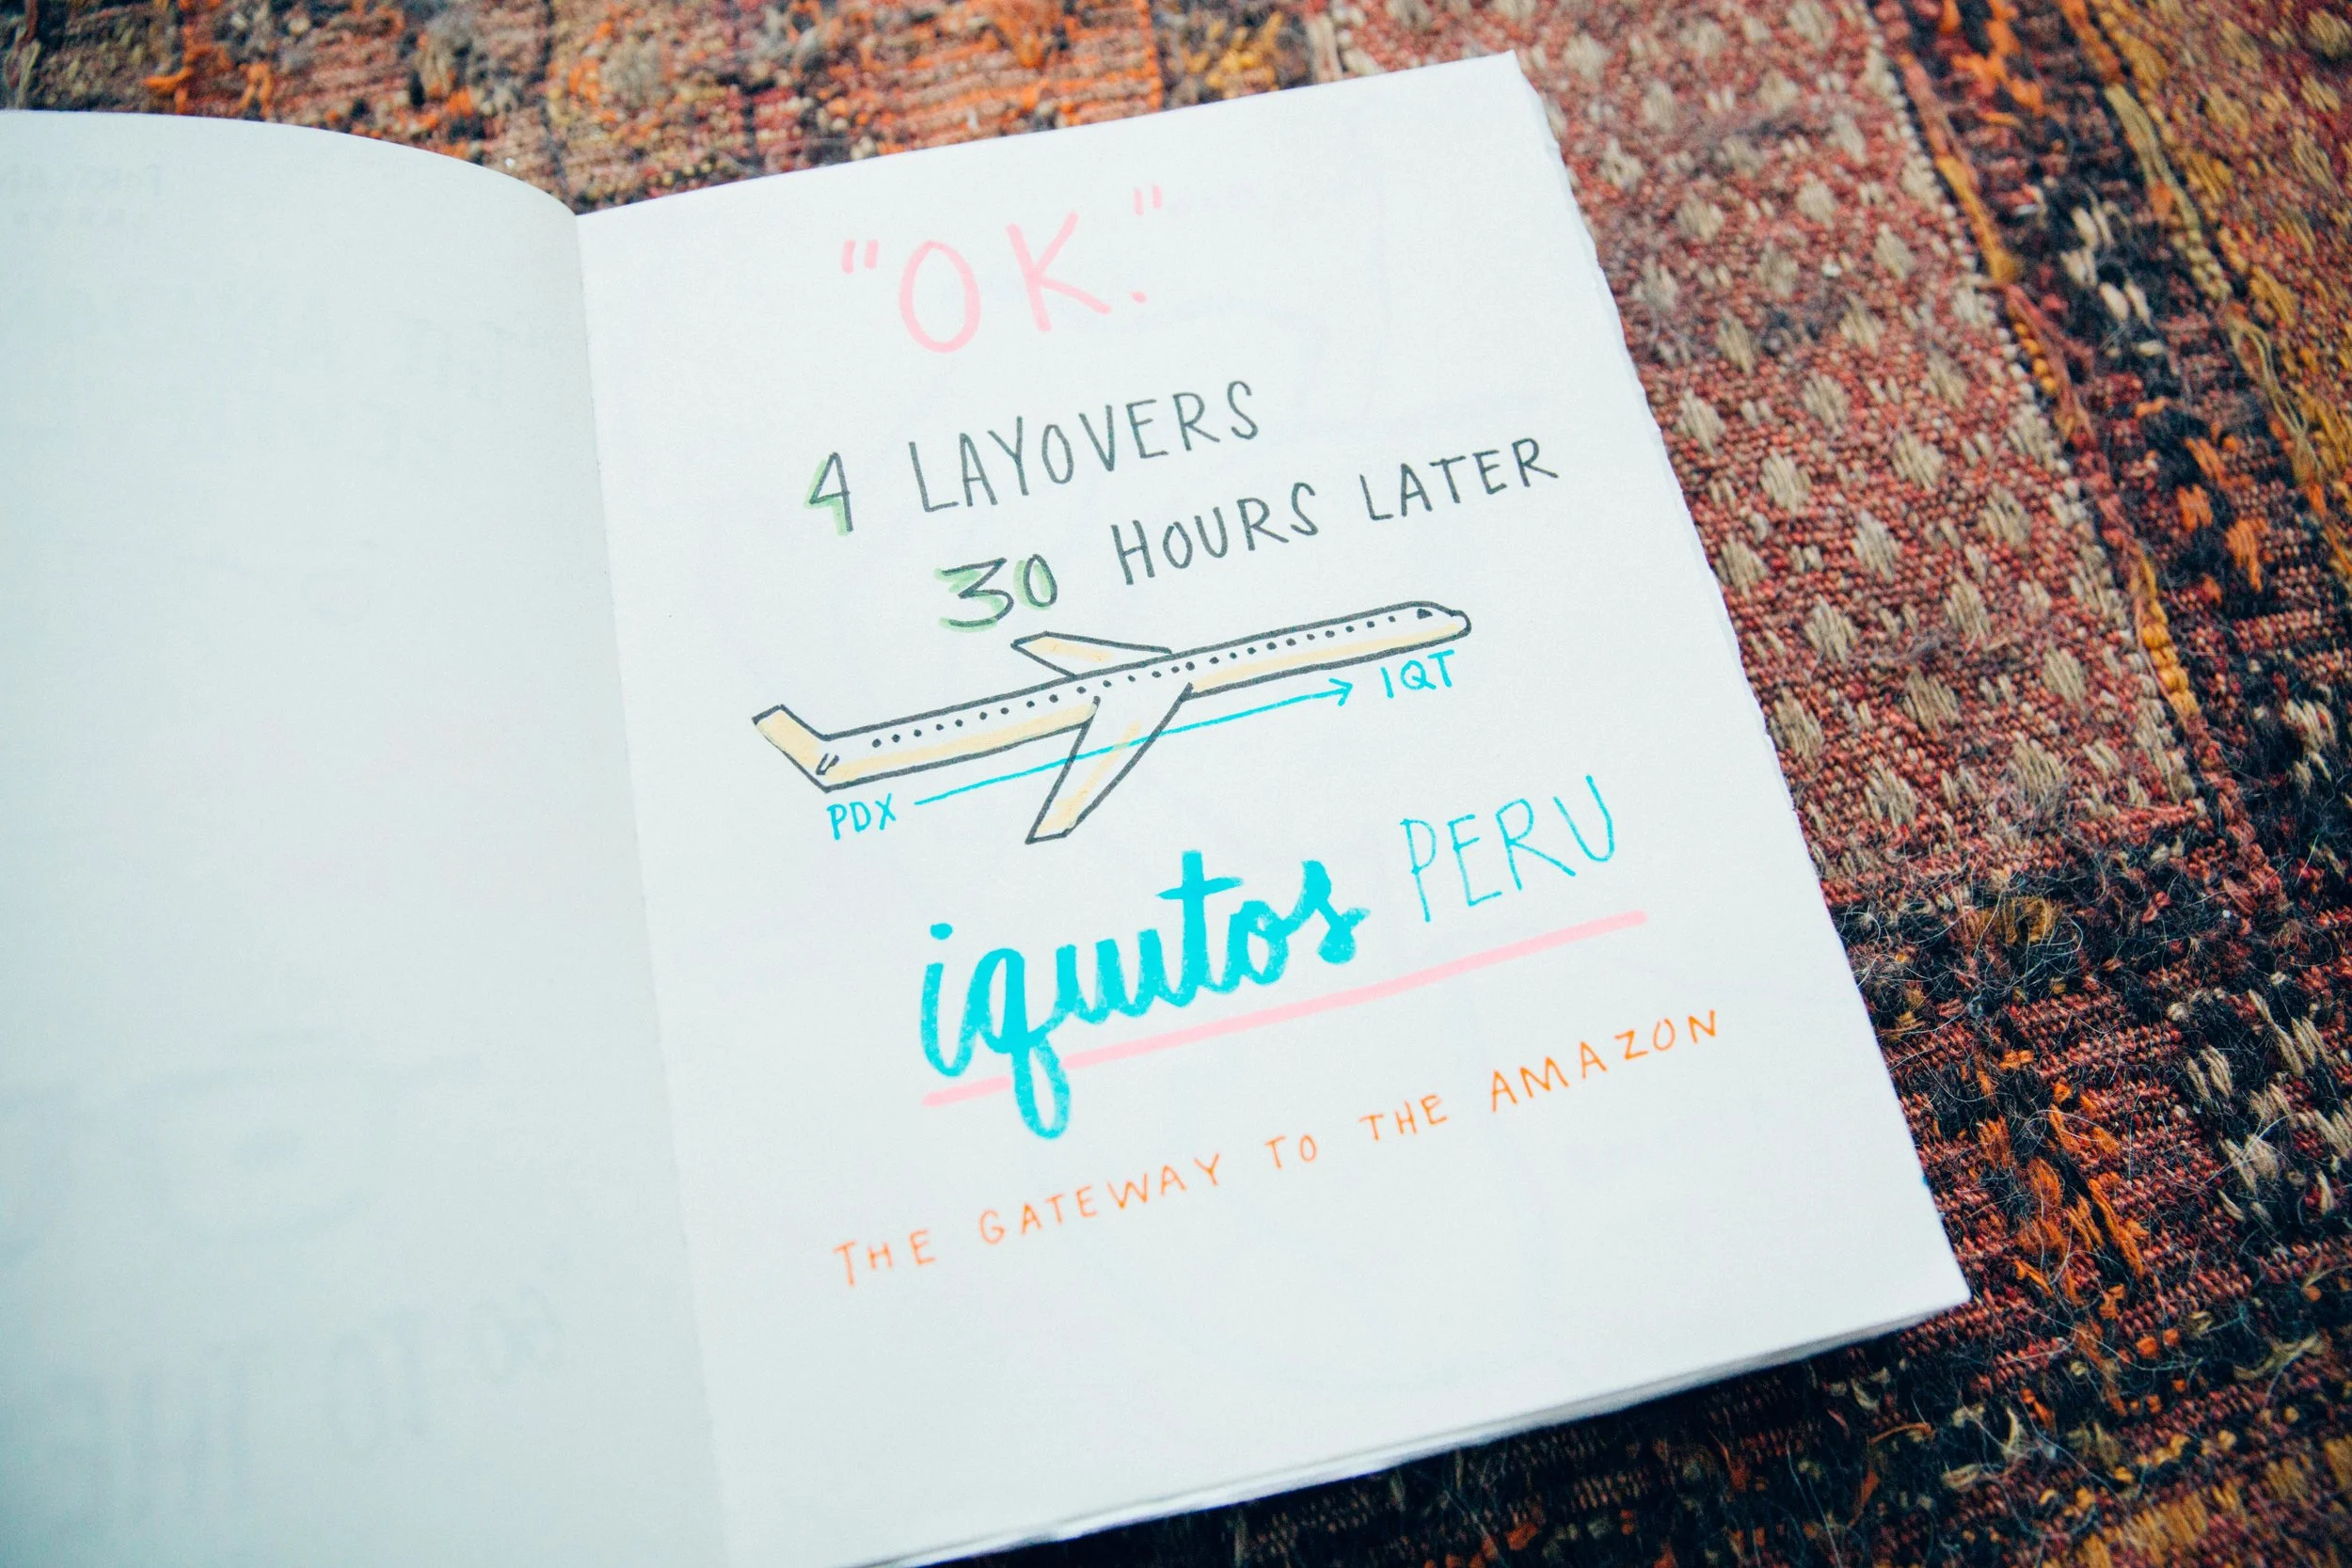 "OK."
4 LAYOVERS
30 HOURS LATER
PDX → IQT
iquitos PERU
THE GATEWAY TO THE AMAZON